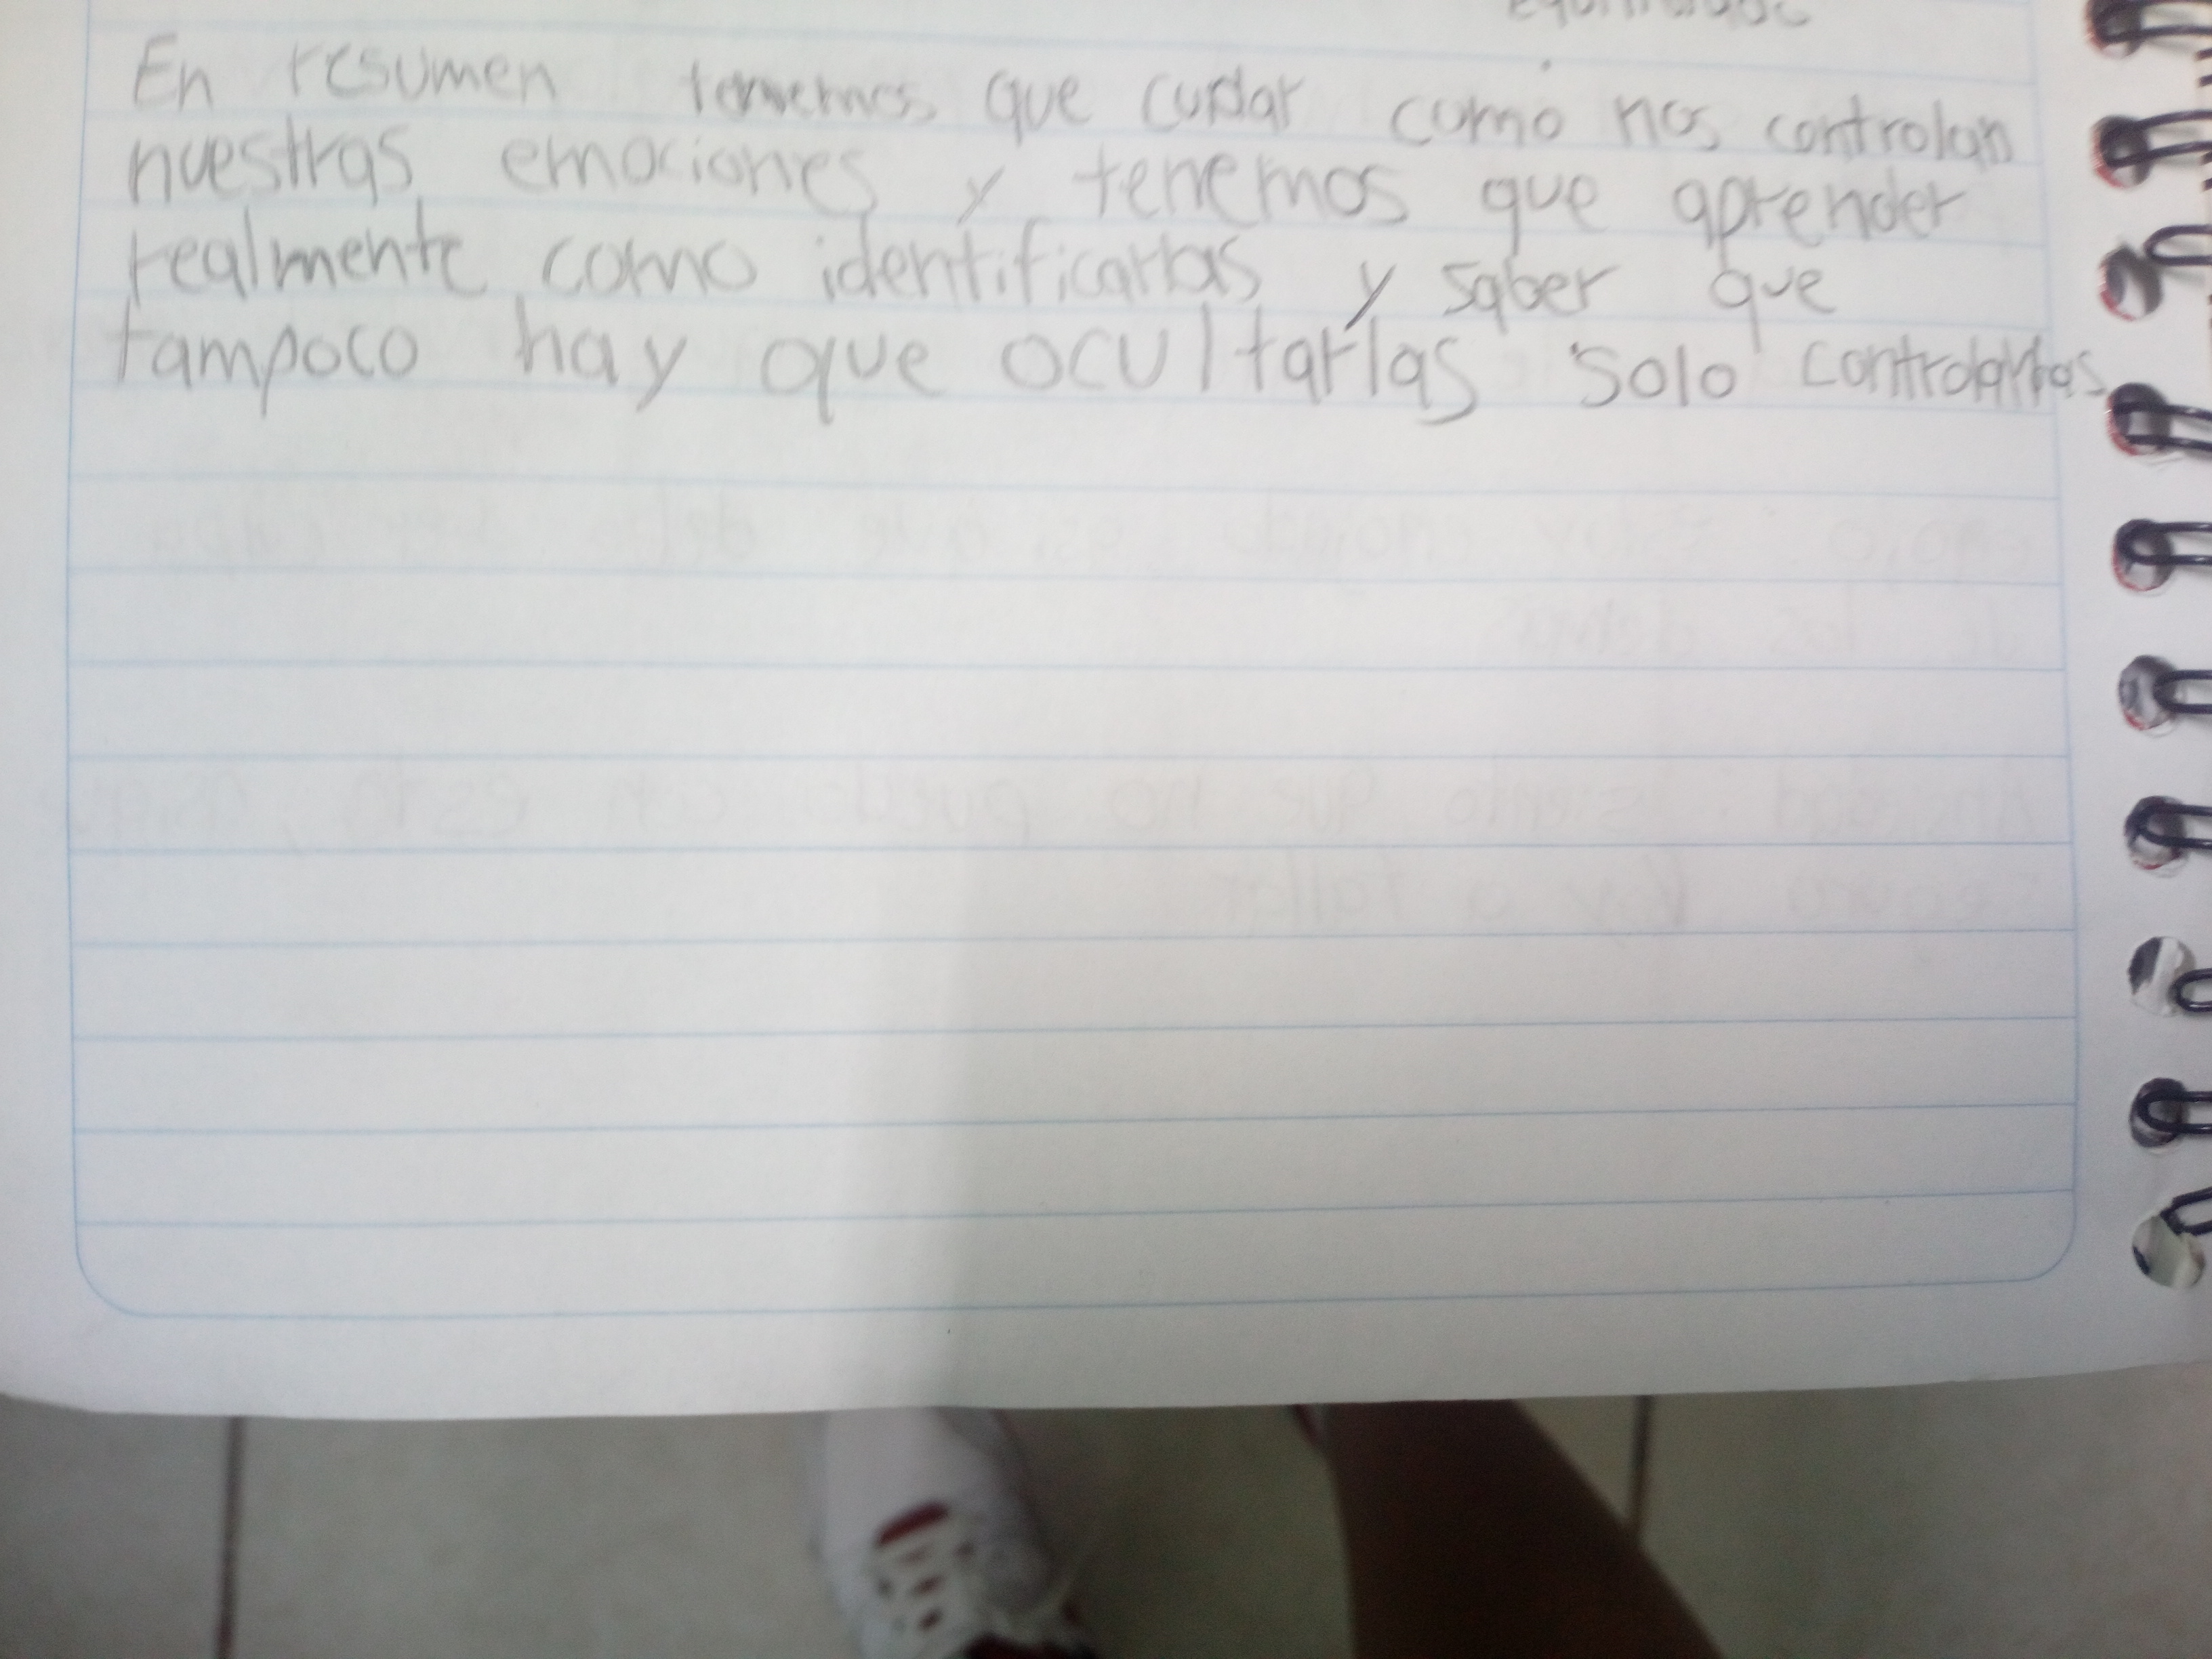 En resumen tenemos que cuidar como nos controlan
nuestras emociones y tenemos que aprender
realmente como identificarlas y saber que
tampoco hay que ocultarlas solo controlarlas